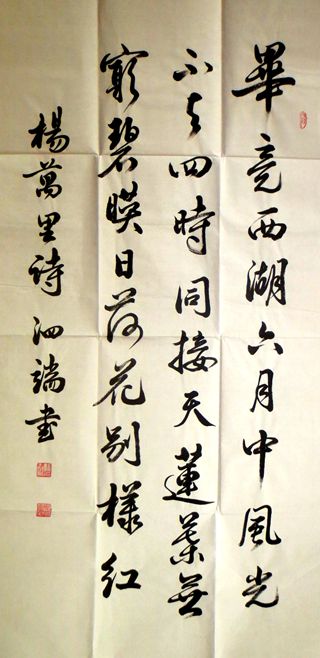 畢竟西湖六月中風光
不与四時同接天蓮葉無
窮碧暎日荷花别樣紅
楊萬里詩 泗端書